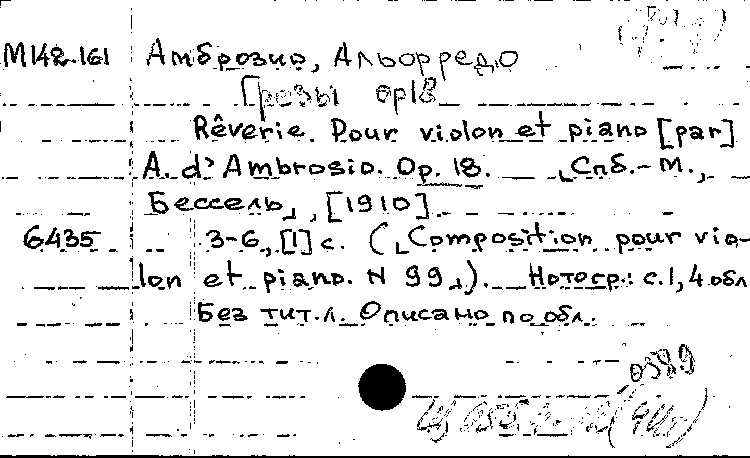 М142.161 Амброзио, Альфредо
Грезы ор18
Rêverie. Pour violon et piano [par]
A. d'Ambrosio. Op. 18. ⌞Спб.-М.,
Бессель⌟, [1910].
6435 3-6, [1] с. (⌞Composition pour vio-
lon et piano. N 99⌟). Нотогр.: с.1, 4 обл
Без тит.л. Описано по обл.
0389